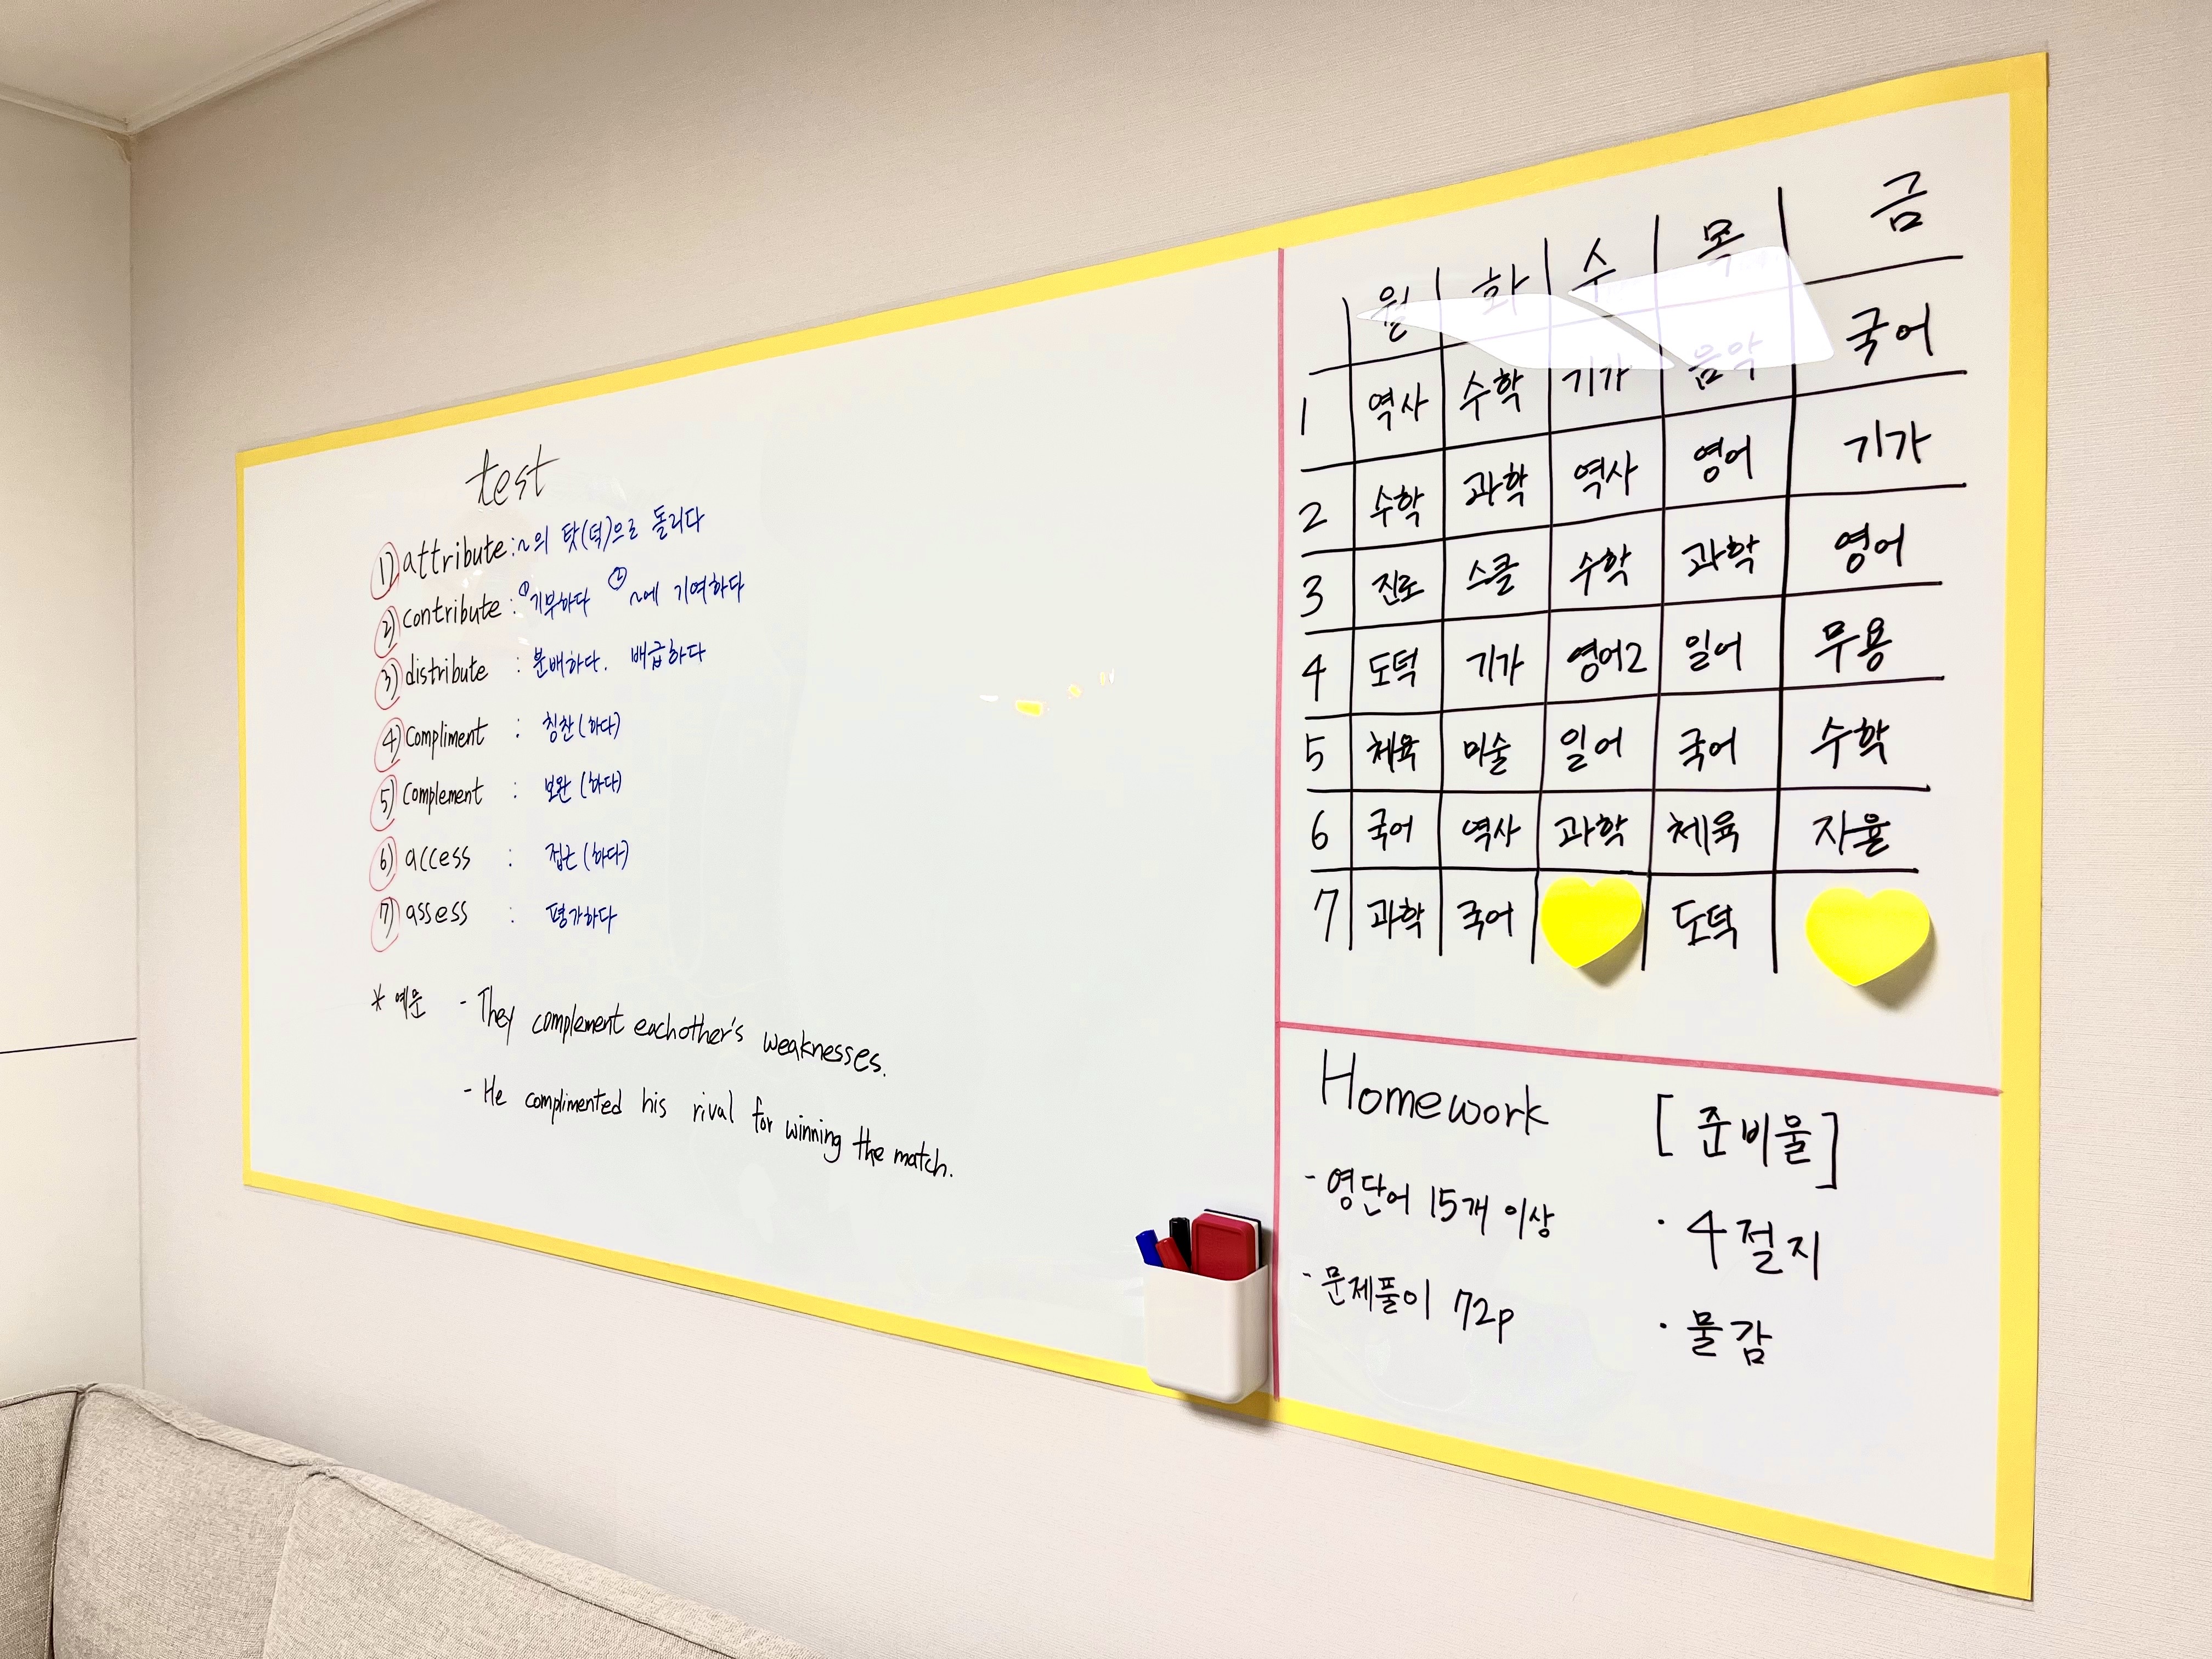 test
1) attribute : ~의 탓(덕)으로 돌리다
2) contribute : ① 기부하다 ② ~에 기여하다
3) distribute : 분배하다. 배급하다
4) Compliment : 칭찬(하다)
5) Complement : 보완(하다)
6) access : 접근(하다)
7) assess : 평가하다
* 예문 - They complement eachother's weaknesses.
- He complimented his rival for winning the match.
월 화 수 목 금
1 역사 수학 기가 음악 국어
2 수학 과학 역사 영어 기가
3 진로 스클 수학 과학 영어
4 도덕 기가 영어2 일어 무용
5 체육 미술 일어 국어 수학
6 국어 역사 과학 체육 자율
7 과학 국어 도덕
Homework
- 영단어 15개 이상
- 문제풀이 72p
[준비물]
· 4절지
· 물감